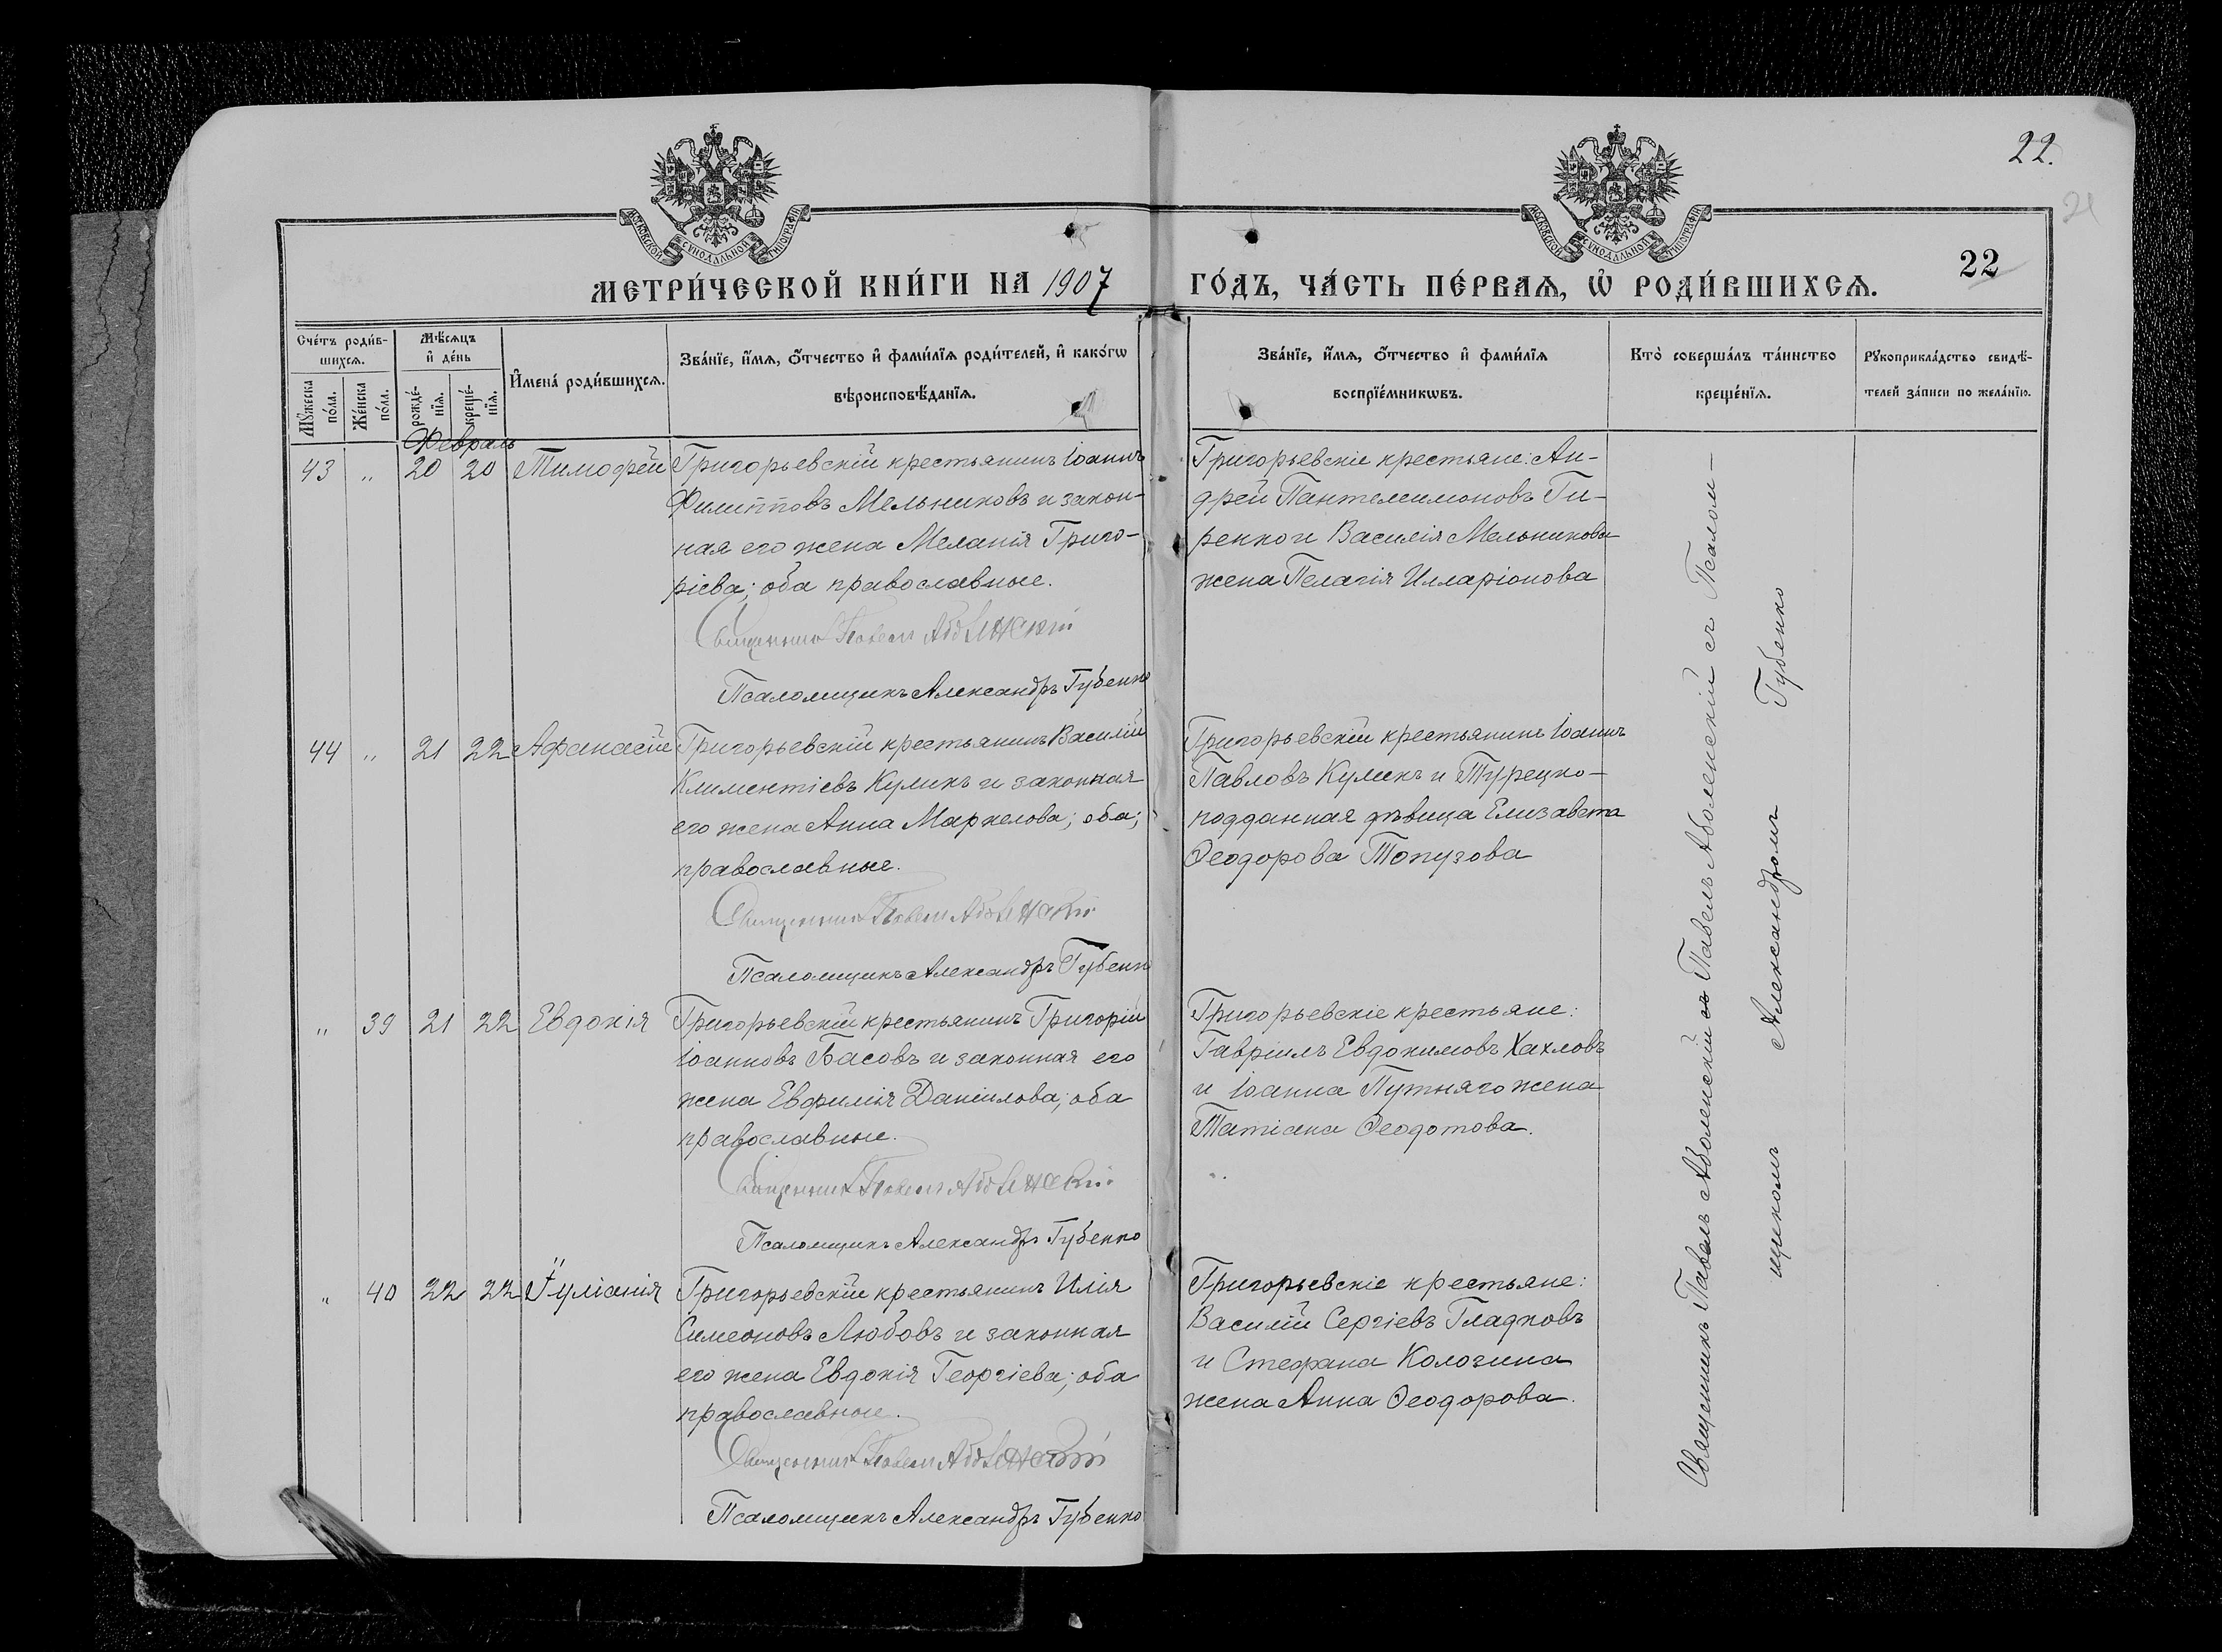 22.
21
МОСКОВСКОЙ СѴНОДАЛЬНОЙ ТИПОГРАФІИ
МОСКОВСКОЙ СѴНОДАЛЬНОЙ ТИПОГРАФІИ
22
МЕТРИ́ЧЕСКОЙ КНИ́ГИ НА 1907 ГО́ДЪ, ЧА́СТЬ ПЕ́РВАѦ, Ѡ҆ РОДИ́ВШИХСѦ.
Сче́тъ роди́в-
шихсѧ.
Мꙋ́жеска по́ла.
Же́нска по́ла.
Мѣ́сѧцъ
и҆ де́нь
рожде́-
нїѧ.
креще́-
нїѧ.
И҆мена̀ роди́вшихсѧ.
Зва́нїе, и҆́мѧ, ѻ҆́тчество и҆ фами́лїѧ роди́телей, и҆ како́гѡ
вѣроисповѣ́данїѧ.
Зва́нїе, и҆́мѧ, ѻ҆́тчество и҆ фами́лїѧ
воспрїе́мникѡвъ.
Кто̀ соверша́лъ та́инство
креще́нїѧ.
Рꙋкоприкла́дство свидѣ́-
телей за́писи по жела́нїю.
Февраль
43 " 20 20 Тимофей
Григорьевскій крестьянинъ Іоаннъ
Филипповъ Мельниковъ и закон-
ная его жена Меланія Григо-
рієва; оба православные.
Священникъ Павелъ Аволенскій
Псаломщикъ Александръ Губенко
Григорьевскіе крестьяне: Ан-
дрей Пантелеимоновъ Ги-
ренко и Василія Мельникова
жена Пелагія Илларіонова
44 " 21 22 Афанасій
Григорьевскій крестьянинъ Василій
Климентіевъ Куликъ и законная
его жена Анна Маркелова; оба;
православные.
Священникъ Павелъ Аволенскій
Псаломщикъ Александръ Губенко
Григорьевскій крестьянинъ Іоаннъ
Павловъ Куликъ и Турецко-
подданная дѣвица Елизавета
Ѳеодорова Топузова
" 39 21 22 Евдокія
Григорьевскій крестьянинъ Григорій
Іоанновъ Басовъ и законная его
жена Евфимія Даніилова; оба
православные.
Священникъ Павелъ Аволенскій
Псаломщикъ Александръ Губенко
Григорьевскіе крестьяне:
Гавріилъ Евдокимовъ Хахловъ
и Іоанна Путняго жена
Татіана Ѳеодотова.
" 40 22 22 Іуліанія
Григорьевскій крестьянинъ Илія
Симеоновъ Любовъ и законная
его жена Евдокія Георгіева; оба
православные.
Священникъ Павелъ Аволенскій
Псаломщикъ Александръ Губенко
Григорьевскіе крестьяне:
Василій Сергіевъ Гладковъ
и Стефана Кологина
жена Анна Ѳеодорова.
Священникъ Павелъ Аволенскій съ Павелъ Аволенскій съ Псалом-
щикомъ Александромъ Губенко